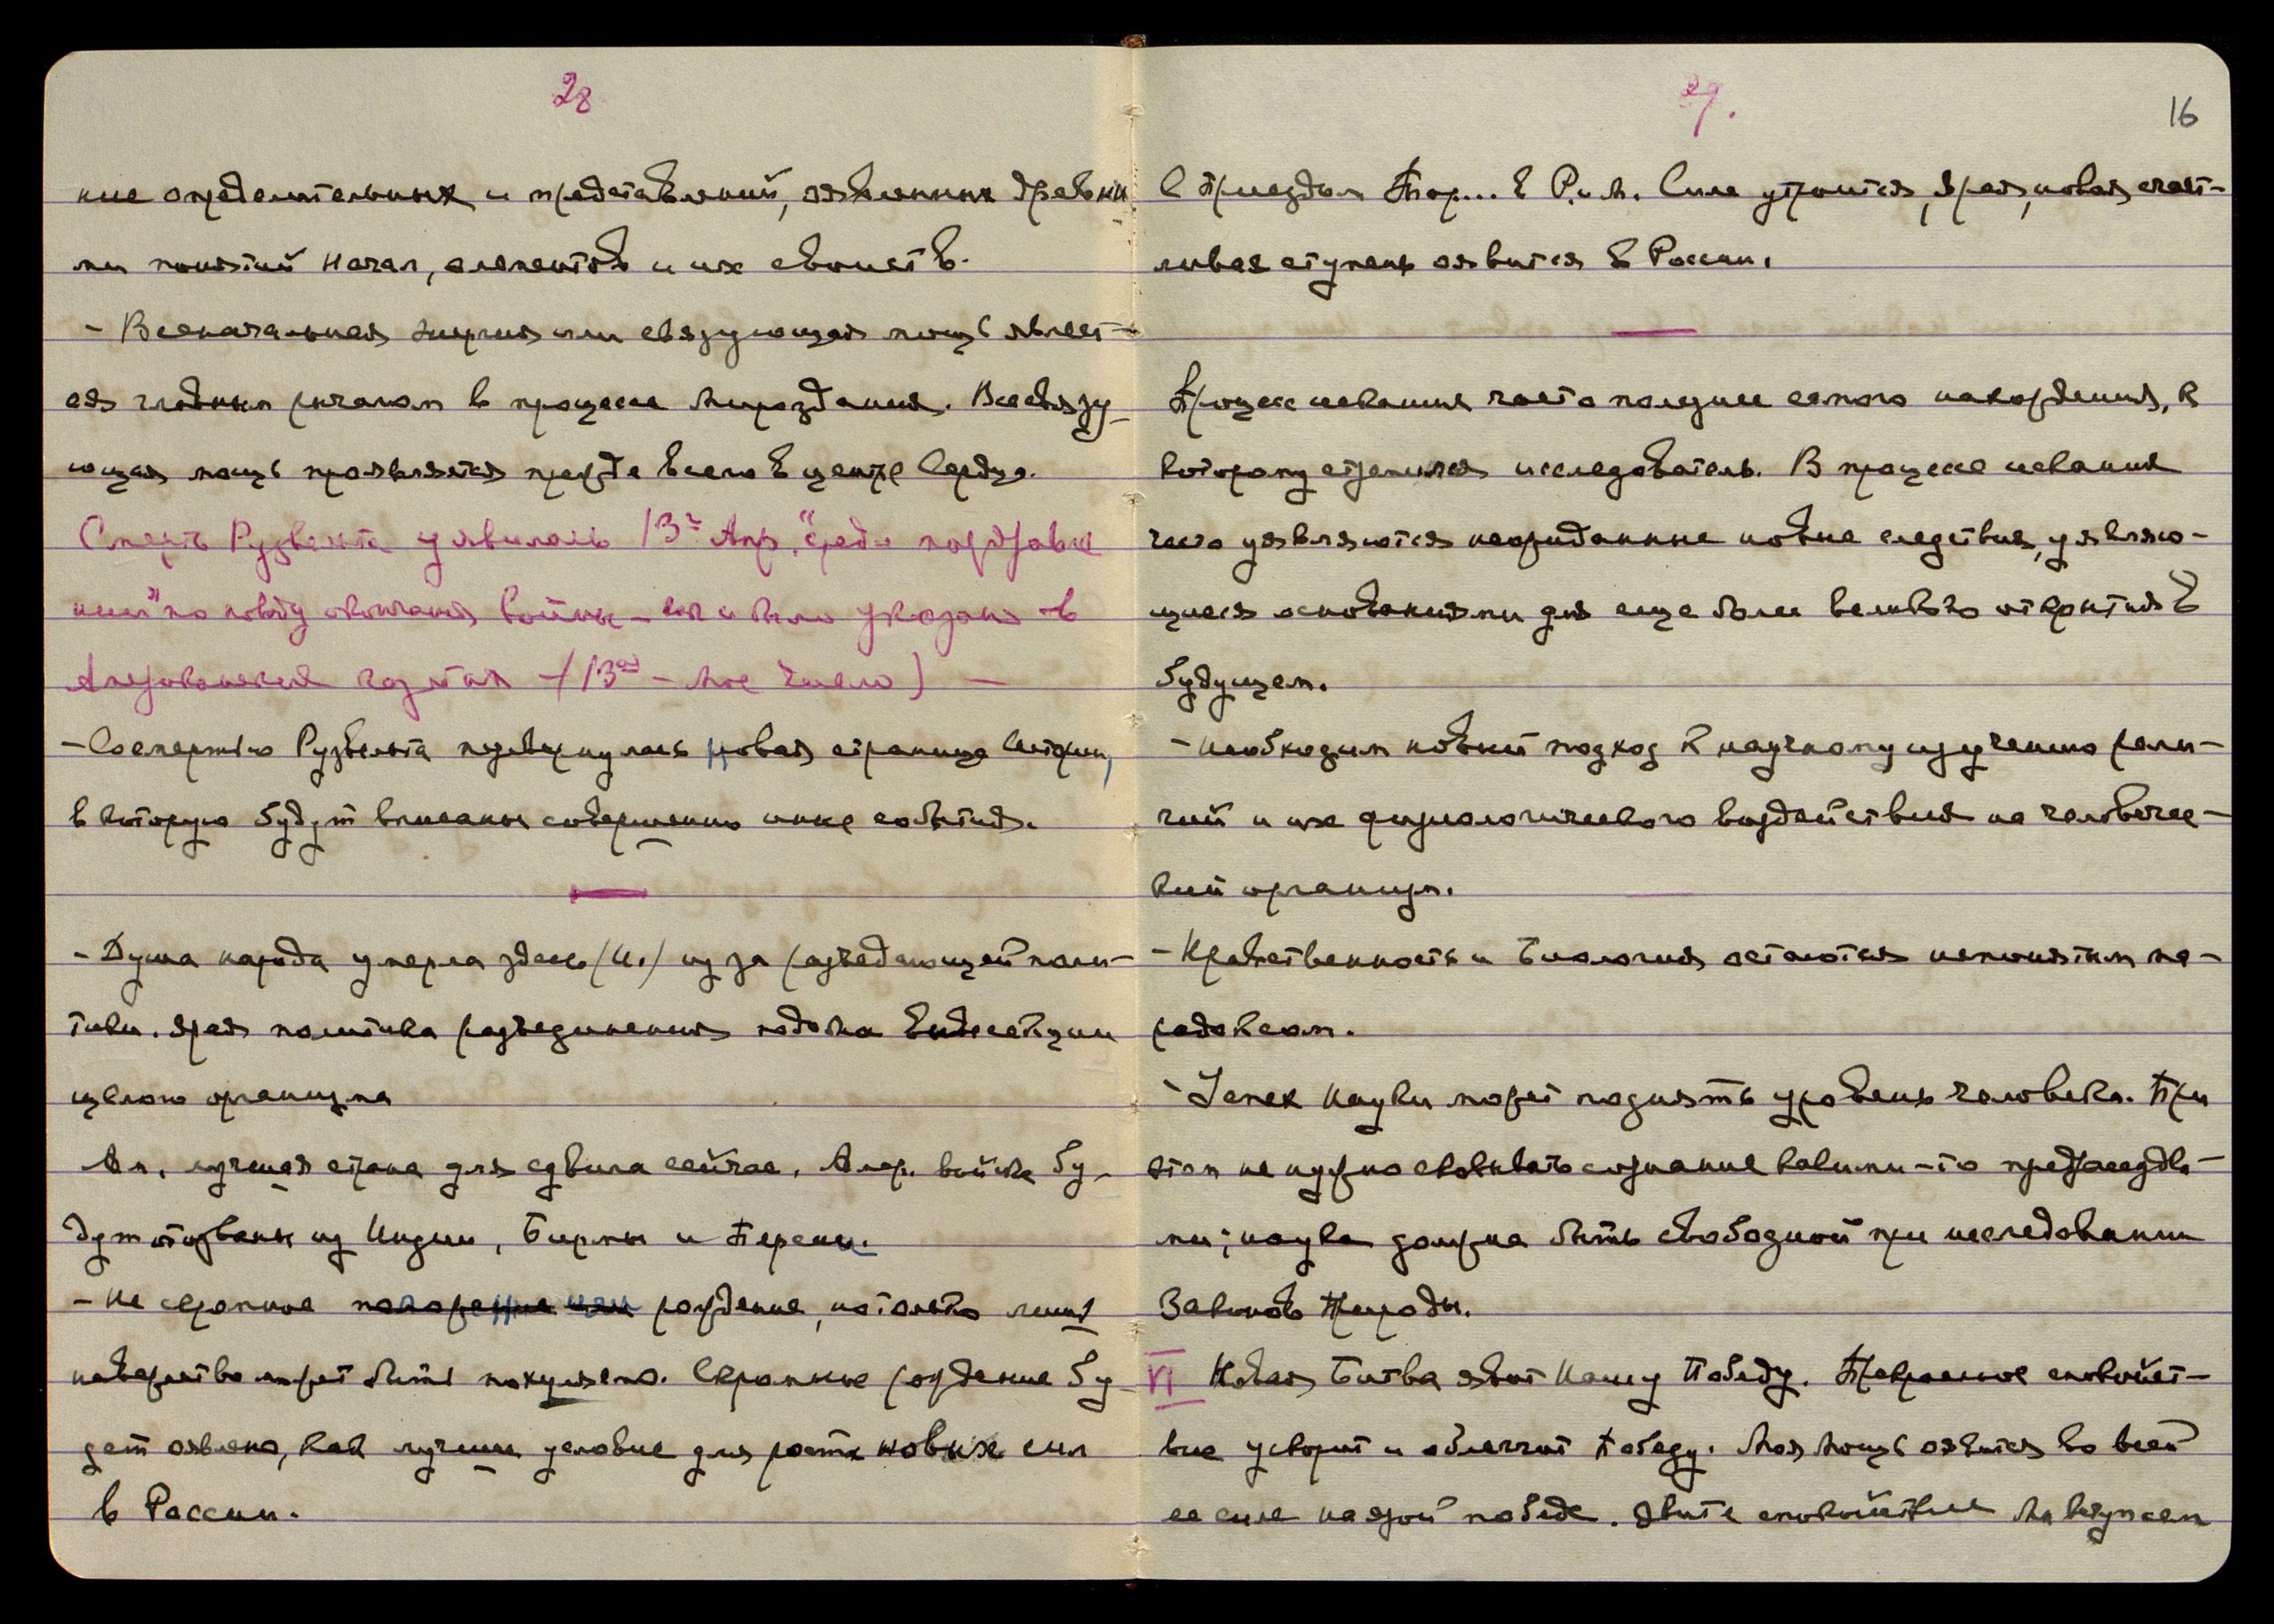 28
ние определительных и представлений, оявленных древни
ми понятий Начал, элементов и их свойств.
- Всеначальная энергия или связующая мощь являет-
ся главным рычагом в процессе Мироздания. Всесвязу-
ющая мощь проявляется прежде всего в центре Сердца.
Смерть Рузвельта уявилась 13го Апр. "среди
по поводу окончания Войны - как и было указано в
(13ое - Мое Число) -
- Со смертью Рузвельта перевернулась новая страница Истории,
в которую будут вписаны совершенно иные события.
- Душа народа умерла здесь (И.) из за разъедающей поли-
тики. Ярая политика разъединения подобна вивисекции
целого организма
Ам. лучшая страна для сдвига сейчас. Амер. войска бу-
дут отозваны из Индии, Бирмы и Персии.
- Не скромное рождение, но только лишь
невежество может быть покушено. Скромное рождение бу-
дет оявлено, как лучшее условие для роста новых сил
в России.
29.
16
С приездом Тор... в Р. и М. Сила утроится, ярая, новая счаст-
ливая ступень оявится в России.
Процесс искания часто полезнее самого нахождения, к
которому стремился исследователь. В процессе искания
часто уявляются неожиданные новые следствия, уявляю-
щиеся основаниями для еще более великого открытия в
будущем.
- Необходим новый подход к научному изучению рели-
гий и их физиологического воздействия на человечес-
кий организм.
- Нравственность и Биология остаются непонятым па-
радоксом.
- Успех Науки может поднять уровень человека. При
этом не нужно сковывать сознание какими-то предрассудка-
ми; наука должна быть свободной при исследовании
Законов Природы.
VI Новая Битва явит Нашу Победу. Прекрасное спокойст-
вие ускорит и облегчит Победу. Моя Мощь оявится во всей
ее силе на ярой победе. Явите спокойствие